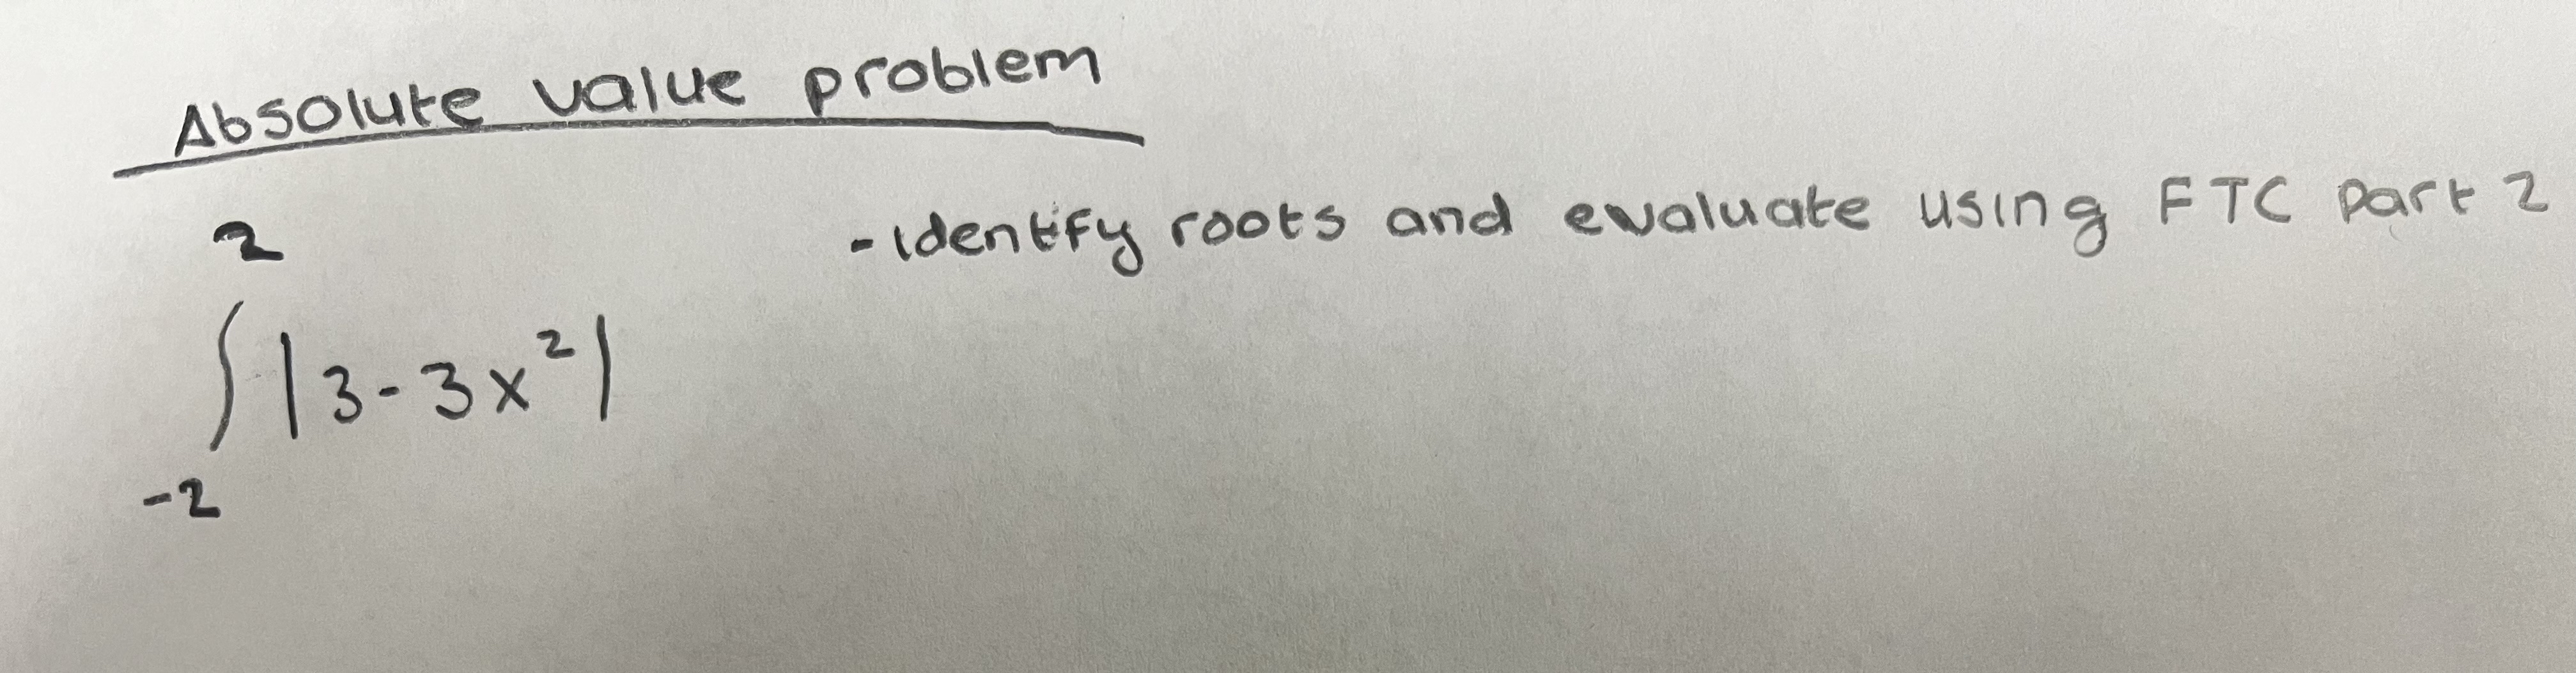 Absolute value problem
- identify roots and evaluate using FTC part 2
2
∫ |3-3x²|
-2